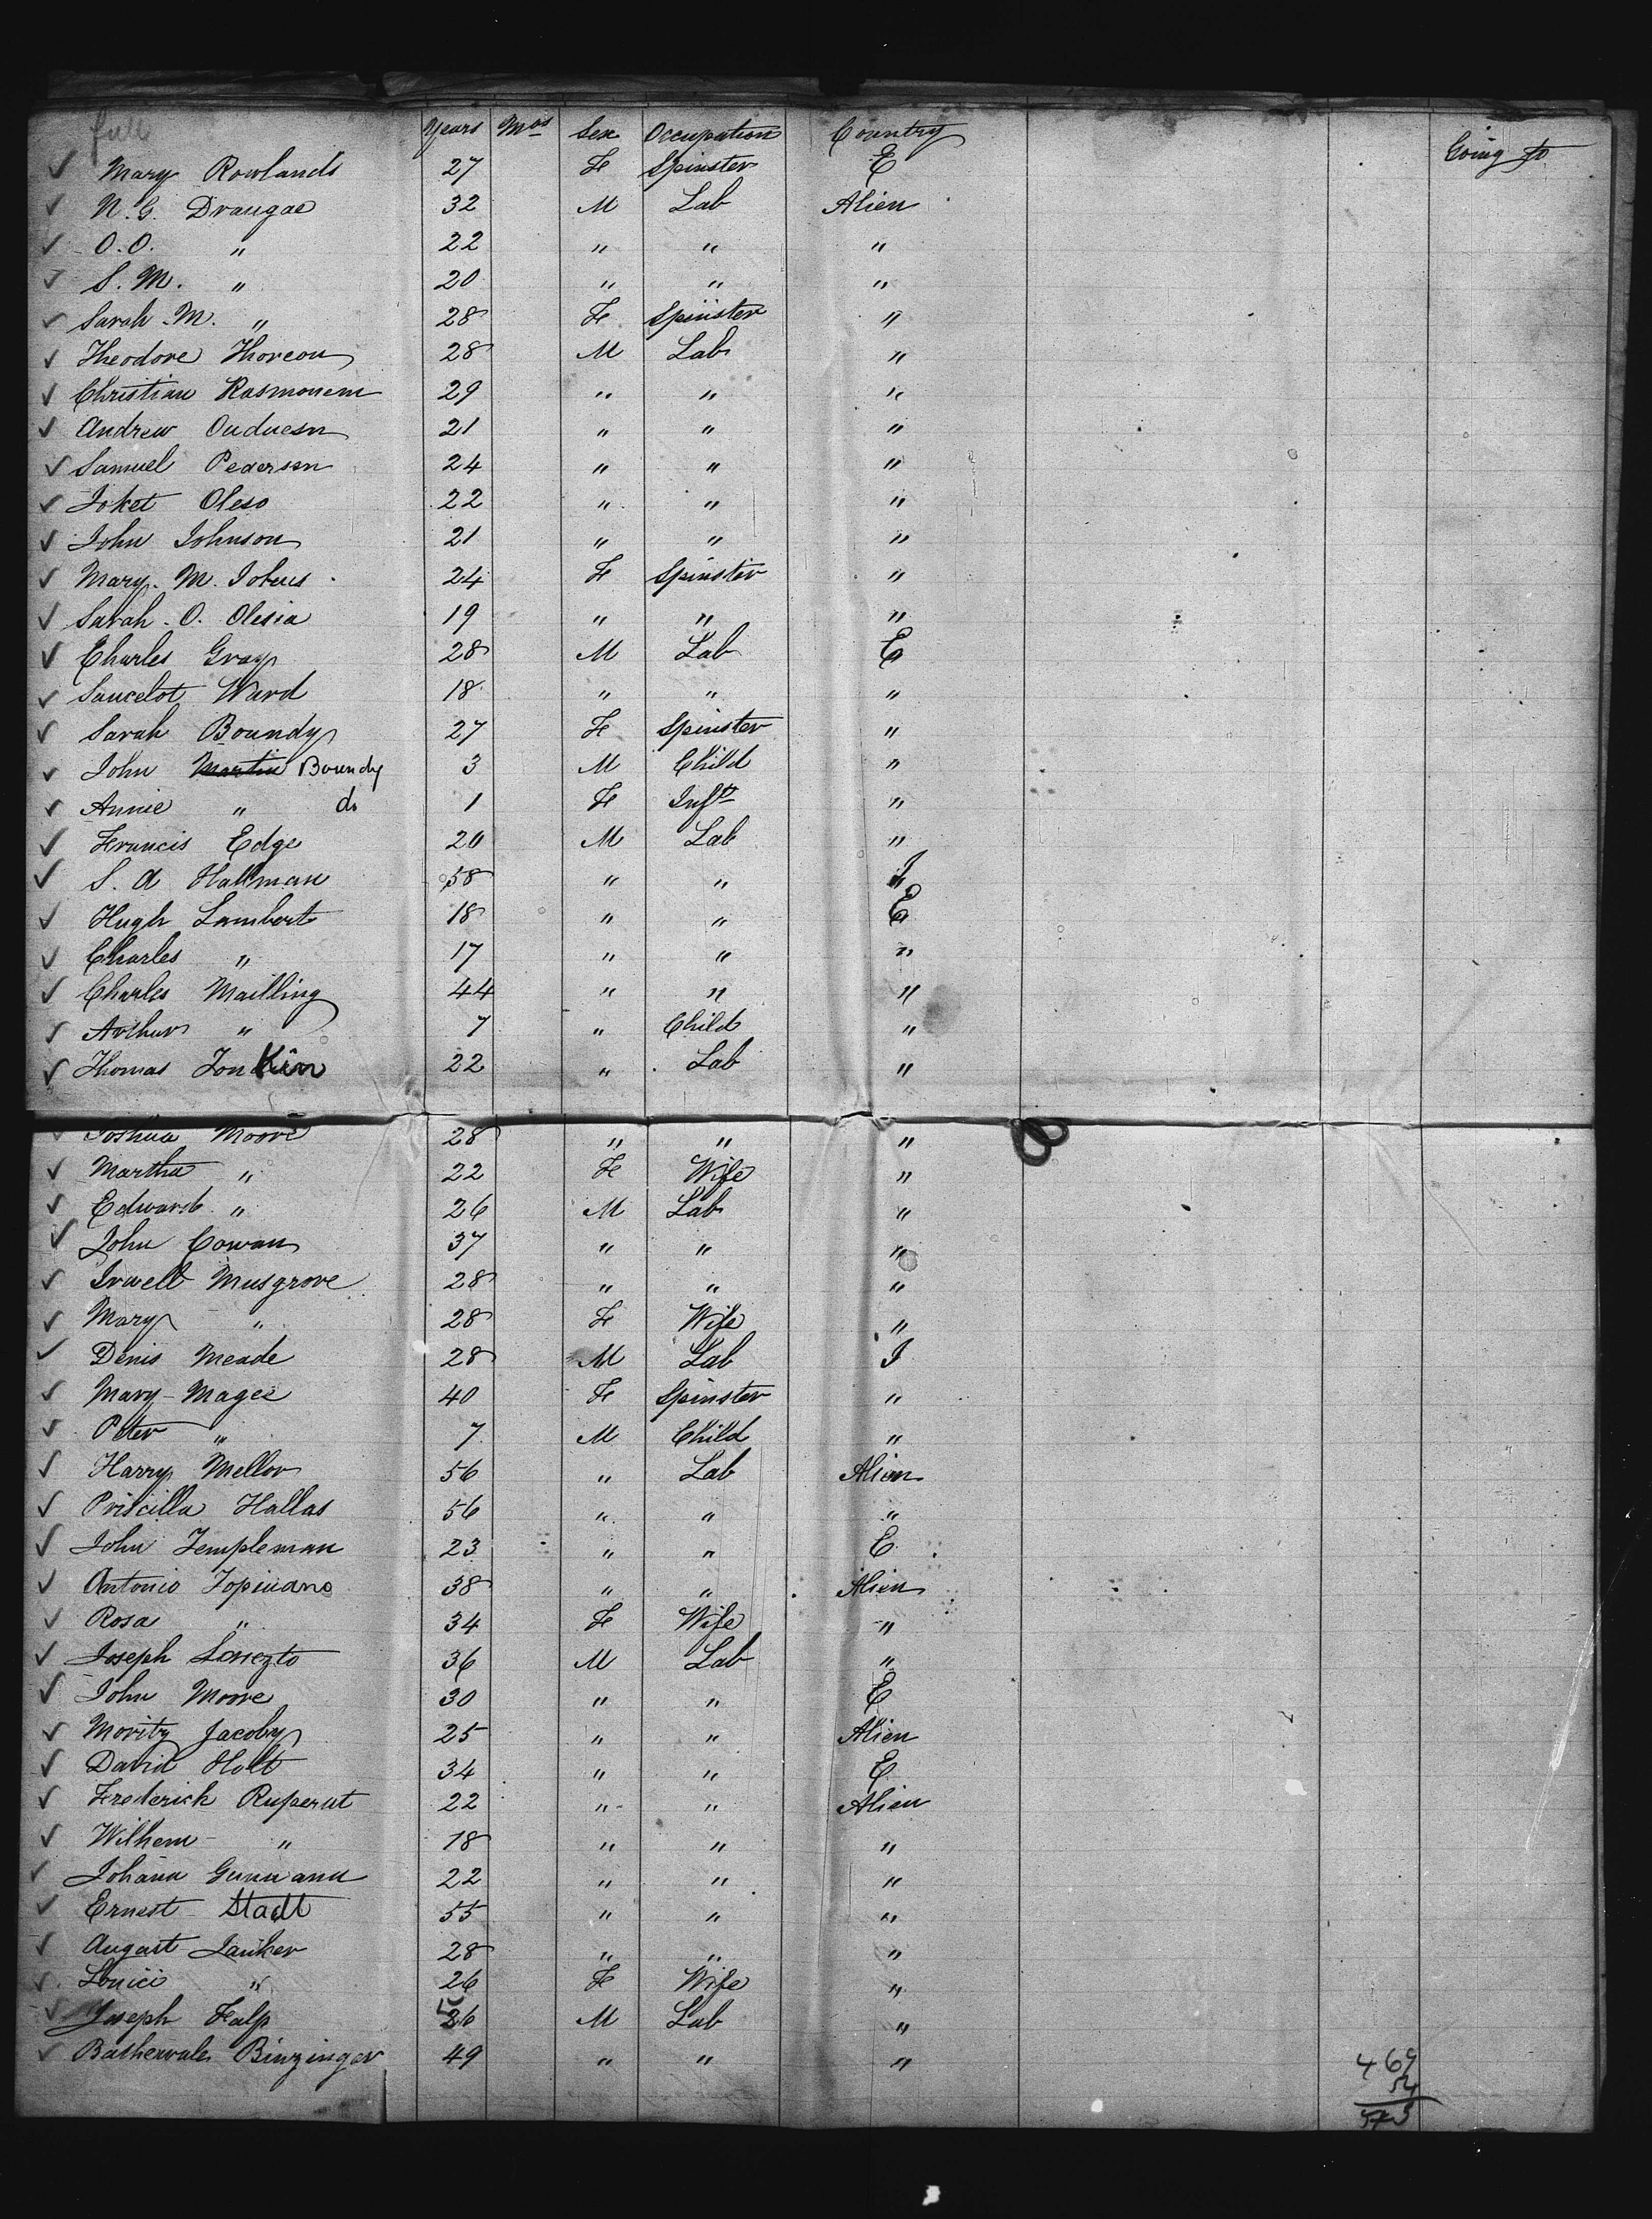 full Years Mos Sex Occupation Country Going to
✓ Mary Rowlands 27 Fe Spinster E
✓ N. G. Draugae 32 M Lab Alien
✓ O. O. " 22 " " "
✓ S. M. " 20 " " "
✓ Sarah M. " 28 Fe Spinster "
✓ Theodore Thoreou 28 M Lab "
✓ Christian Rasmonem 29 " " "
✓ Andrew Ouduesn 21 " " "
✓ Samuel Pedersen 24 " " "
✓ Joket Oleso 22 " " "
✓ John Johnson 21 " " "
✓ Mary. M. Joteus 24 Fe Spinster "
✓ Sarah. O. Olesia 19 " " "
✓ Charles Gray 28 M Lab E
✓ Lancelot Ward 18 " " "
✓ Sarah Boundy 27 Fe Spinster "
✓ John Martin Boundy 3 M Child "
✓ Annie " do 1 Fe Inft "
✓ Francis Edge 20 M Lab "
✓ S. A Hallman 58 " " I
✓ Hugh Lambert 18 " " E
✓ Charles " 17 " " "
✓ Charles Mailling 44 " " "
✓ Arthur " 7 " Child "
✓ Thomas Jonkin 22 " Lab "
✓ Joshua Moore 28 " " "
✓ Martha " 22 Fe Wife "
✓ Edward " 26 M Lab "
✓ John Cowan 37 " " "
✓ Irwell Musgrove 28 " " "
✓ Mary " 28 Fe Wife "
✓ Denis Meade 28 M Lab I
✓ Mary Magee 40 Fe Spinster "
✓ Peter " 7 M Child "
✓ Harry Mellor 56 " Lab Alien
✓ Priscilla Hallas 56 " " "
✓ John Templeman 23 " " E
✓ Antonio Topinano 38 " " Alien
✓ Rosa " 34 Fe Wife "
✓ Joseph 36 M Lab "
✓ John Moore 30 " " E
✓ Moritz Jacoby 25 " " Alien
✓ David Holt 34 " " E
✓ Frederick Ruperut 22 " " Alien
✓ Wilhem " 18 " " "
✓ Johana Gunnann 22 " " "
✓ Ernest Stadt 55 " " "
✓ August Janker 28 " " "
✓ Louici " 26 Fe Wife "
✓ Joseph Falp 56 M Lab "
✓ Binzinger 49 " " "
469
54
523